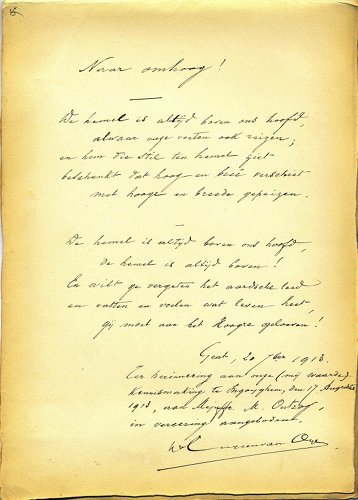 Naar omhoog!
De hemel is altijd boven ons hoofd,
alwaar onze voeten ook reizen;
en hem die stil ten hemel
beschenkt dat hoog en verschiet
met hooge en breede gepeizen.
De hemel is altijd boven ons hoofd,
de hemel is altijd boven!
En wilt ge vergeten het aardsche leed
en vatten en voelen wat leven heet,
gij moet aan het Hoogre gelooven!
Gent, 20 7ber 1913.
Ter herinnering aan onze (mij waarde)
kennismaking te Ingoyghem, den 17 Augustus
1913, aan Mejuffr. M.
in vereering aangeboden,